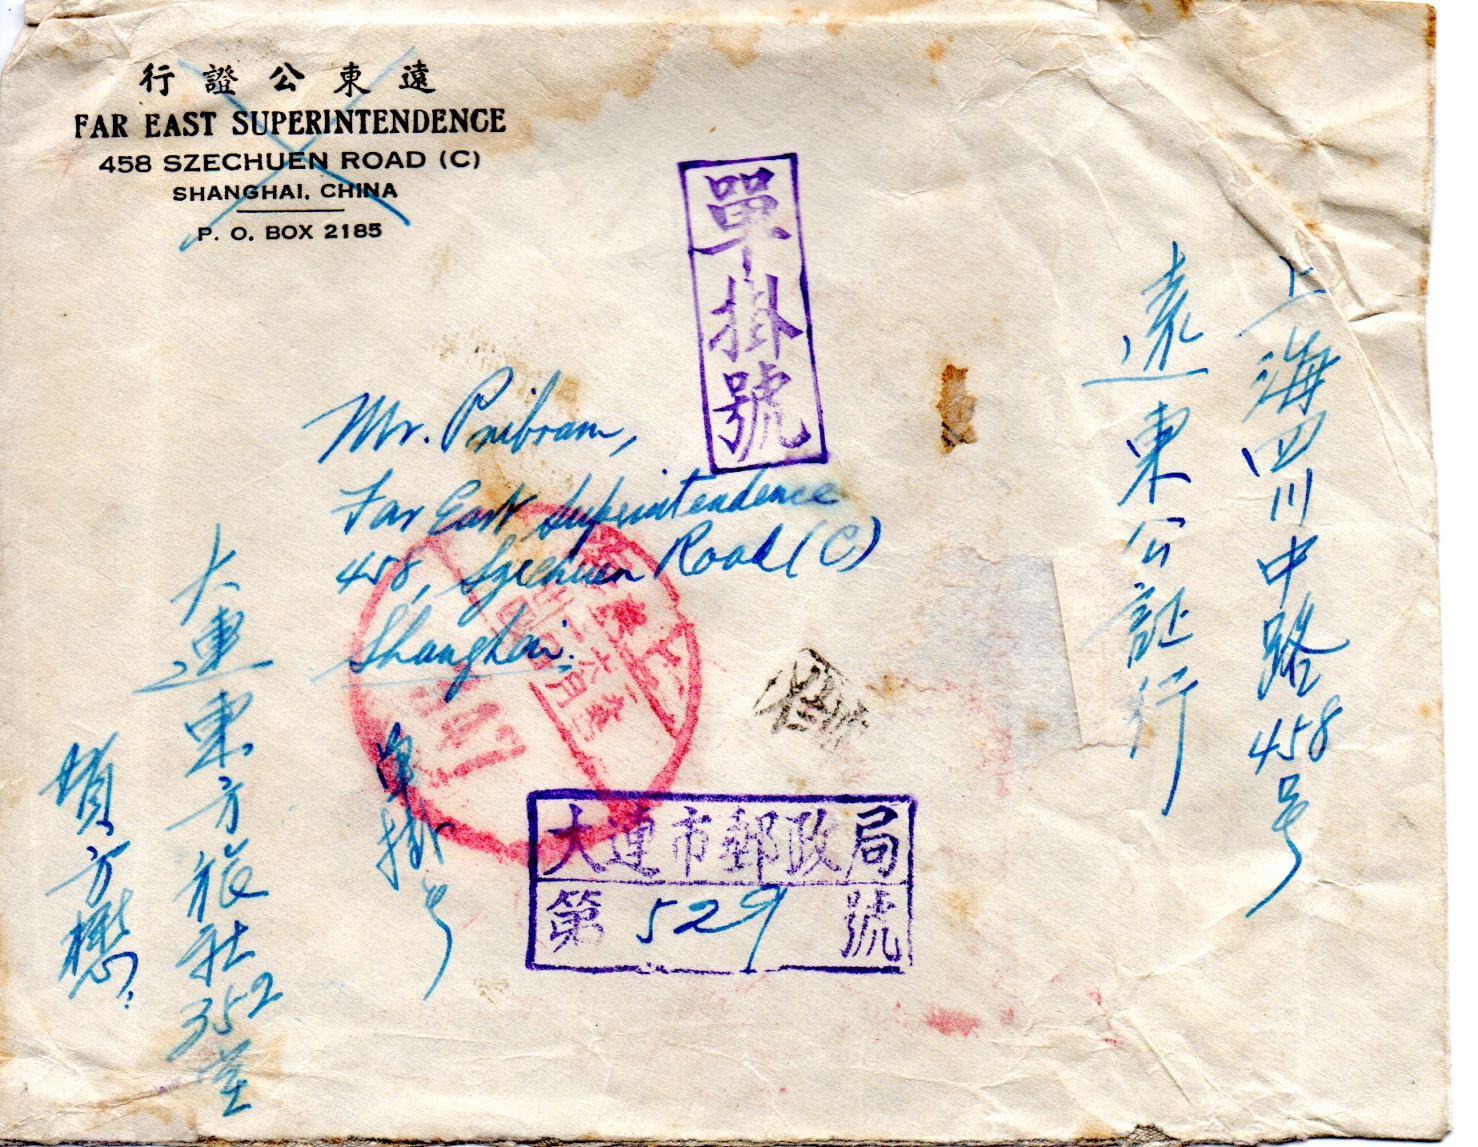 遠東公證行
FAR EAST SUPERINTENDENCE
458 SZECHUEN ROAD (C)
SHANGHAI, CHINA
P. O. BOX 2185
單掛號
上海四川中路458号
遠東公証行
Mr. Pribram,
Far East Superintendence
458, Szechuen Road (C)
Shanghai.
單掛号
大連東方旅社352室
項方懋
大連市郵政局
第 529 號